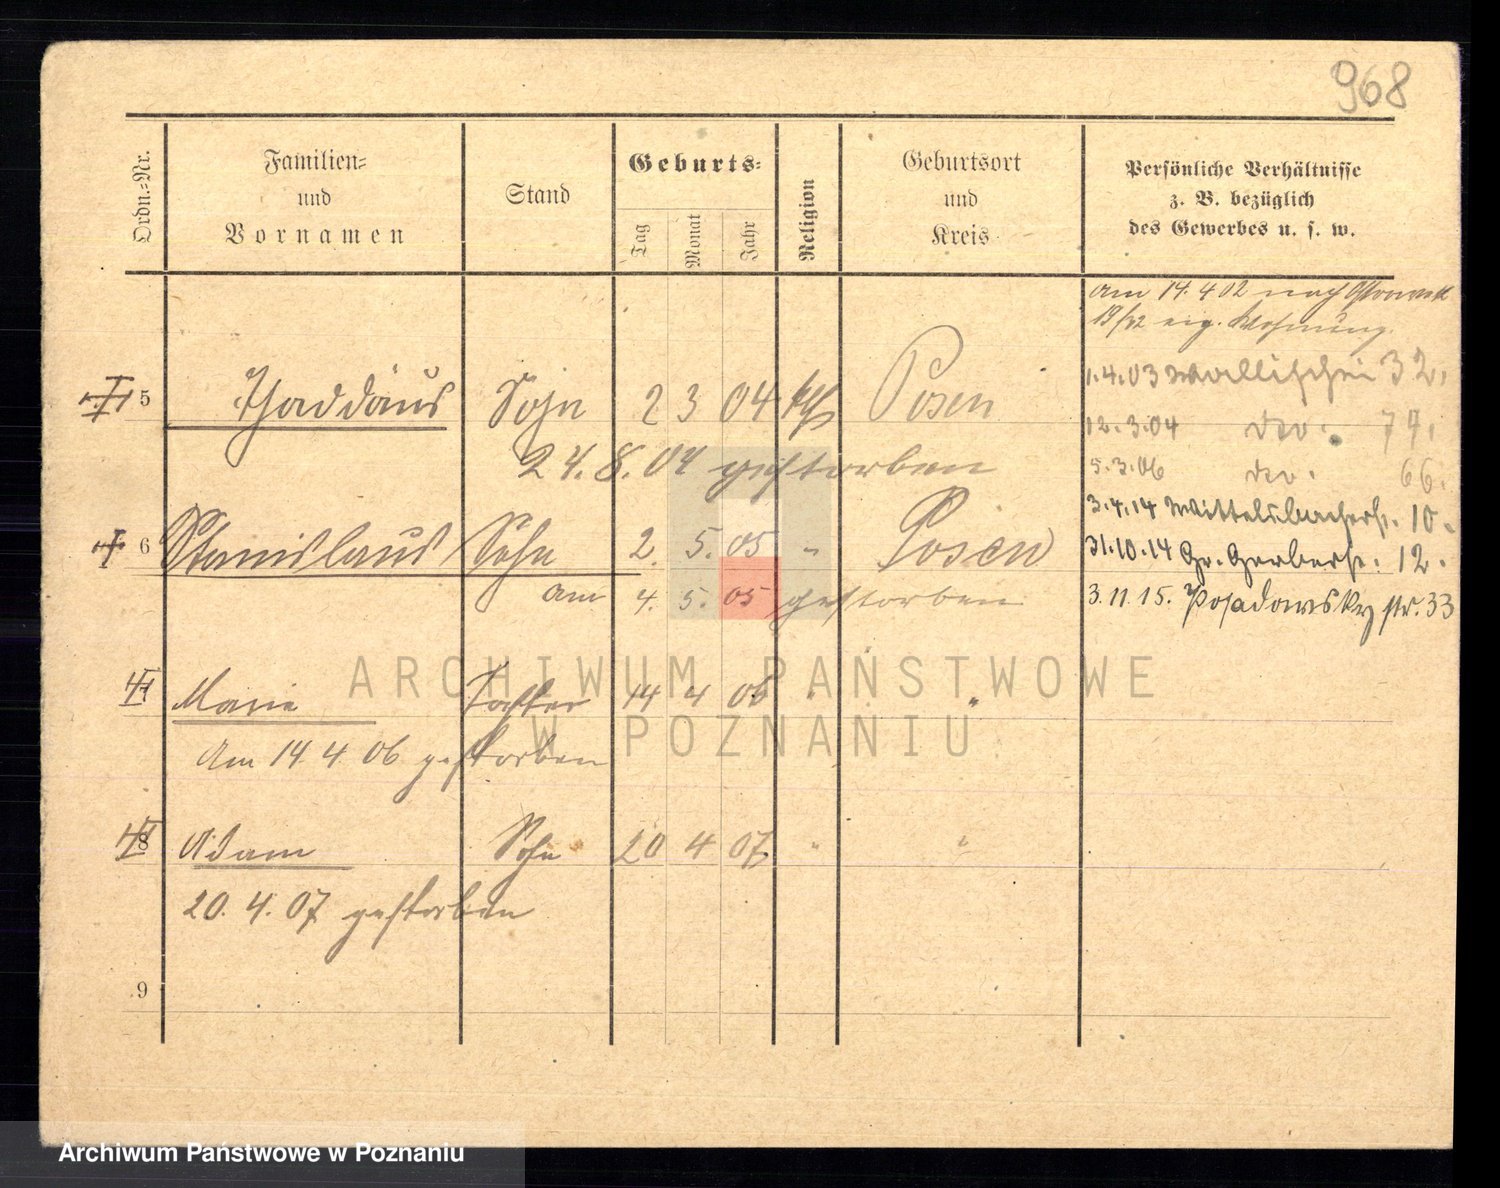 968
Ordn.=Nr.
Familien=
und
Vornamen
Stand
Geburts=
Tag
Monat
Jahr
Religion
Geburtsort
und
Kreis
Persönliche Verhältnisse
z. B. bezüglich
des Gewerbes u. s. w.
am 14. 4 02 nach
eig. Wohnung.
5 Thaddäus Sohn 2 3 04 kth Posen
24. 8. 04 gestorben
6 Stanislaus Sohn 2. 5. 05 " Posen
am 4. 5. 05 gestorben
Marie Tochter 14 4 06 " "
Am 14. 4 06 gestorben
8 Adam Sohn 20 4 07 " "
20. 4. 07 gestorben
9
1.4.03 Wallischei 32.
12.3.04 do. 77.
5.3.06 do. 66.
3.4.14 Wittelsbacherst. 10.
31.10.14 Gr. Gerberst. 12.
3.11.15. Posadowsky str. 33
ARCHIWUM PAŃSTWOWE
W POZNANIU
Archiwum Państwowe w Poznaniu